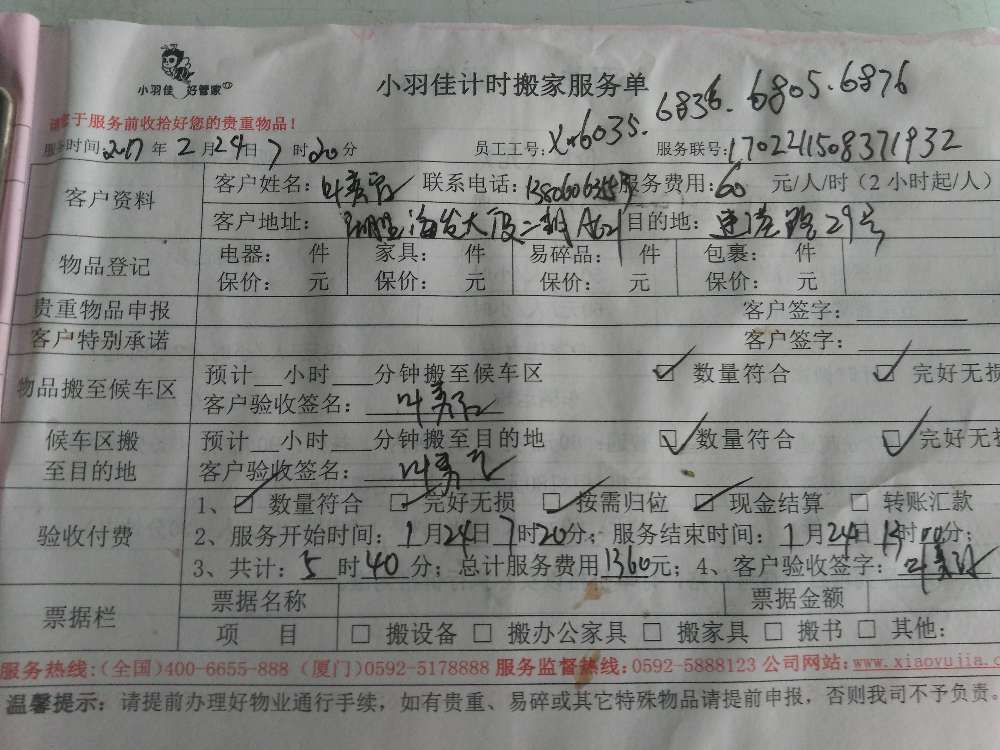 小羽佳 好管家
小羽佳计时搬家服务单
6836. 6805. 6876
请您于服务前收拾好您的贵重物品！
服务时间：2017年2月24日7时20分 员工工号：Xm6035. 服务联号：1702241508371932
客户资料 客户姓名：叶 联系电话： 服务费用：60 元/人/时（2小时起/人）
客户地址：海发大厦二期A621 目的地：连岳路29号
物品登记 电器： 件 家具： 件 易碎品： 件 包裹： 件
保价： 元 保价： 元 保价： 元 保价： 元
贵重物品申报 客户签字：
客户特别承诺 客户签字：
物品搬至候车区 预计__小时___分钟搬至候车区 ☑ 数量符合 ☑ 完好无损
客户验收签名：叶
候车区搬至目的地 预计__小时___分钟搬至目的地 ☑ 数量符合 ☑ 完好无损
客户验收签名：叶
验收付费 1、☑ 数量符合 ☑ 完好无损 ☑ 按需归位 ☑ 现金结算 □ 转账汇款
2、服务开始时间：1月24日7时20分；服务结束时间：1月24日13时00分；
3、共计：5时40分；总计服务费用1360元；4、客户验收签字：叶
票据栏 票据名称 票据金额
项 目 □ 搬设备 □ 搬办公家具 □ 搬家具 □ 搬书 □ 其他：
服务热线：(全国)400-6655-888 (厦门)0592-5178888 服务监督热线：0592-5888123 公司网站：www.xiaoyujia.c
温馨提示：请提前办理好物业通行手续，如有贵重、易碎或其它特殊物品请提前申报，否则我司不予负责。